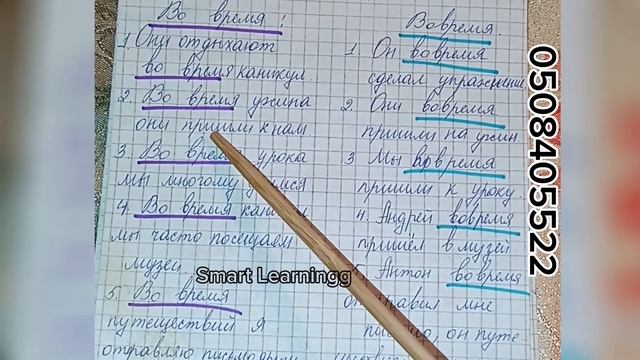 Во время!
1. Они отдыхают
во время каникул.
2. Во время ужина
они пришли к нам
3 Во время урока
мы многому учимся
4. Во время
мы часто посещаем
музеи.
5. Во время
путешествий я
отправляю
Вовремя.
1. Он вовремя
сделал упражнение
2. Они вовремя
пришли на ужин.
3 Мы вовремя
пришли к уроку.
4. Андрей вовремя
пришёл в музей
Антон вовремя
мне
он путе
Smart Learningg
0508405522